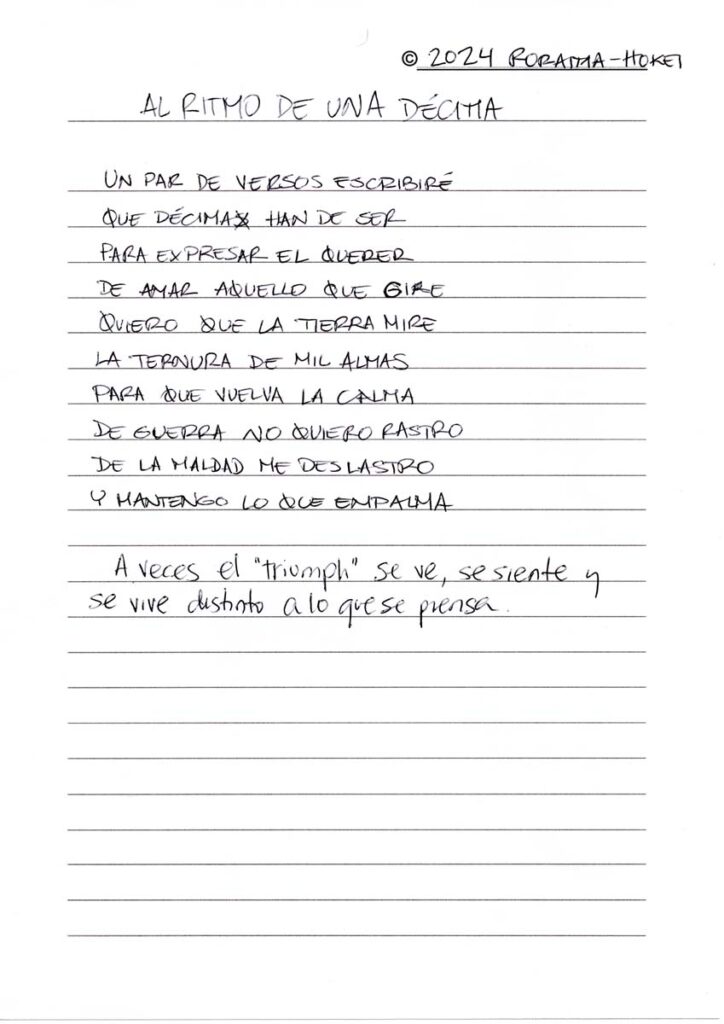 © 2024 RORAIMA-HOKEI
AL RITMO DE UNA DÉCIMA
UN PAR DE VERSOS ESCRIBIRÉ
QUE DÉCIMAS HAN DE SER
PARA EXPRESAR EL QUERER
DE AMAR AQUELLO QUE GIRE
QUIERO QUE LA TIERRA MIRE
LA TERNURA DE MIL ALMAS
PARA QUE VUELVA LA CALMA
DE GUERRA NO QUIERO RASTRO
DE LA MALDAD ME DESLASTRO
Y MANTENGO LO QUE EMPALMA
A veces el "triumph" se ve, se siente y
se vive distinto a lo que se piensa.